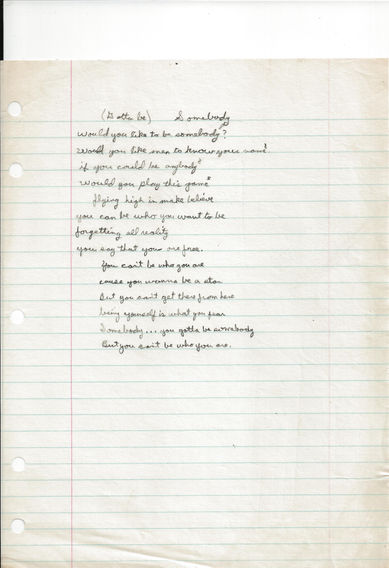 (Gotta be) Somebody
would you like to be somebody?
would you like men to know your name?
if you could be anybody?
would you play this game?
flying high in make believe
you can be who you want to be
forgetting all reality
you say that you are free.
You can't be who you are
cause you wanna be a star
But you can't get there from here
being yourself is what you fear
Somebody... you gotta be somebody
But you can't be who you are.